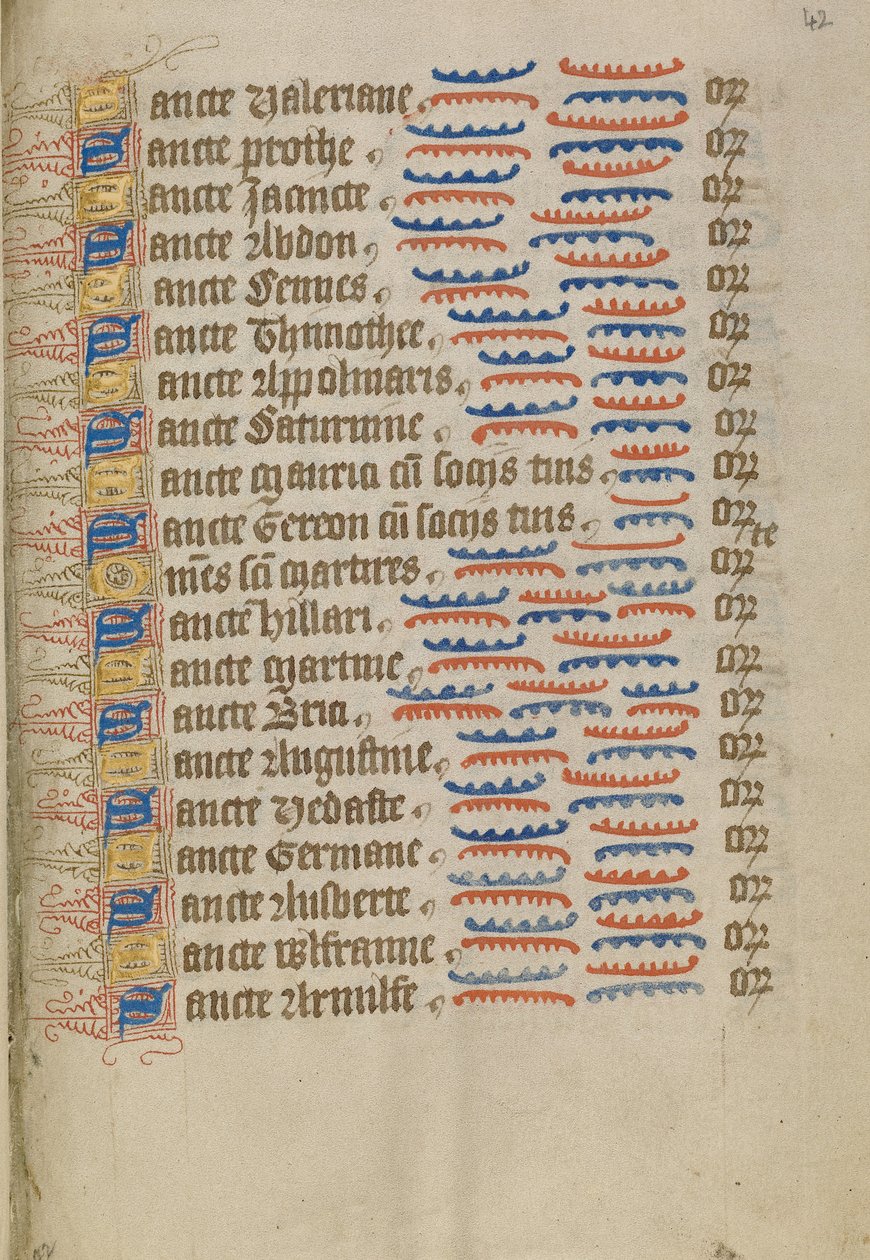 42
Sancte Valeriane or
Sancte prothe or
Sancte Jacincte or
Sancte Abdon or
Sancte Sennes or
Sancte Thimothee or
Sancte Appolinaris or
Sancte Saturnine or
Sancte Maurici cū socijs tuis or
Sancte Gereon cū socijs tuis or
te
Om̄es scī martires or
Sancte hillari or
Sancte Martine or
Sancte Brici or
Sancte Augustine or
Sancte Vedaste or
Sancte Germane or
Sancte Ausberte or
Sancte wlfranne or
Sancte Arnulfe or